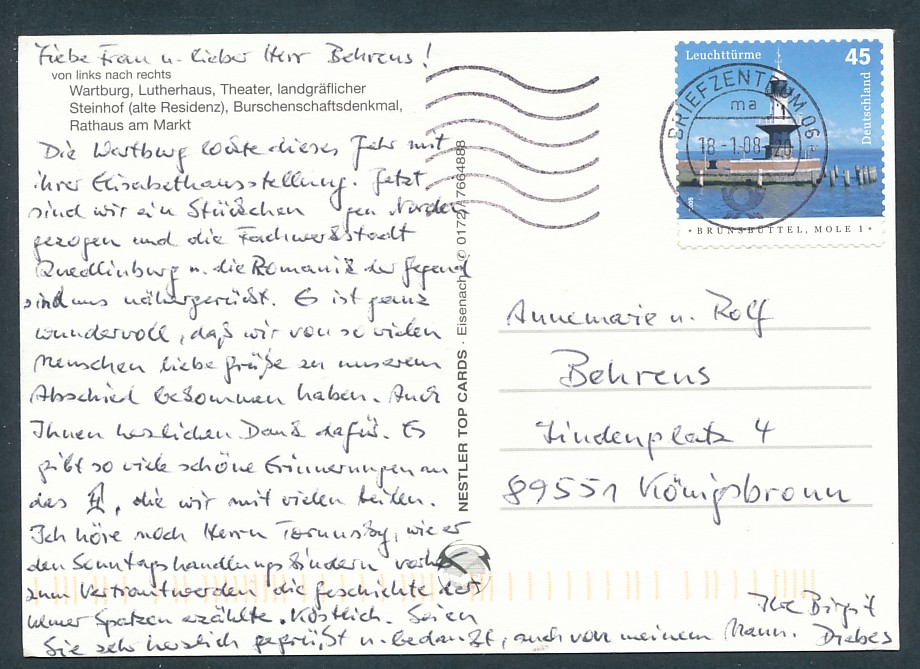 Liebe Frau u. lieber Herr Behrens!
von links nach rechts
Wartburg, Lutherhaus, Theater, landgräflicher
Steinhof (alte Residenz), Burschenschaftsdenkmal,
Rathaus am Markt
Die Wartburg lockte dieses Jahr mit
ihrer Elisabethausstellung. Jetzt
sind wir ein Stückchen gen Norden
gezogen und die Fachwerkstadt
Quedlinburg u. die Romanik der Gegend
sind uns nähergerückt. Es ist ganz
wundervoll, daß wir von so vielen
Menschen liebe Grüße zu unserem
Abschied bekommen haben. Auch
Ihnen herzlichen Dank dafür. Es
gibt so viele schöne Erinnerungen an
das, die wir mit vielen teilen.
Ich höre noch Herrn, wie er
den Sonntagshandlungskindern vorher
zum die Geschichte der
Spatzen erzählte. Köstlich. Seien
Sie sehr herzlich gegrüßt u. bedankt, auch von meinem Mann.
Ihre Birgit
Drebes
NESTLER TOP CARDS · Eisenach · © 0172/17664888
Leuchttürme
45
Deutschland
2005
· BRUNSBÜTTEL, MOLE 1 ·
BRIEFZENTRUM 06
ma
18-1.08-20
Annemarie u. Rolf
Behrens
Lindenplatz 4
89551 Königsbronn